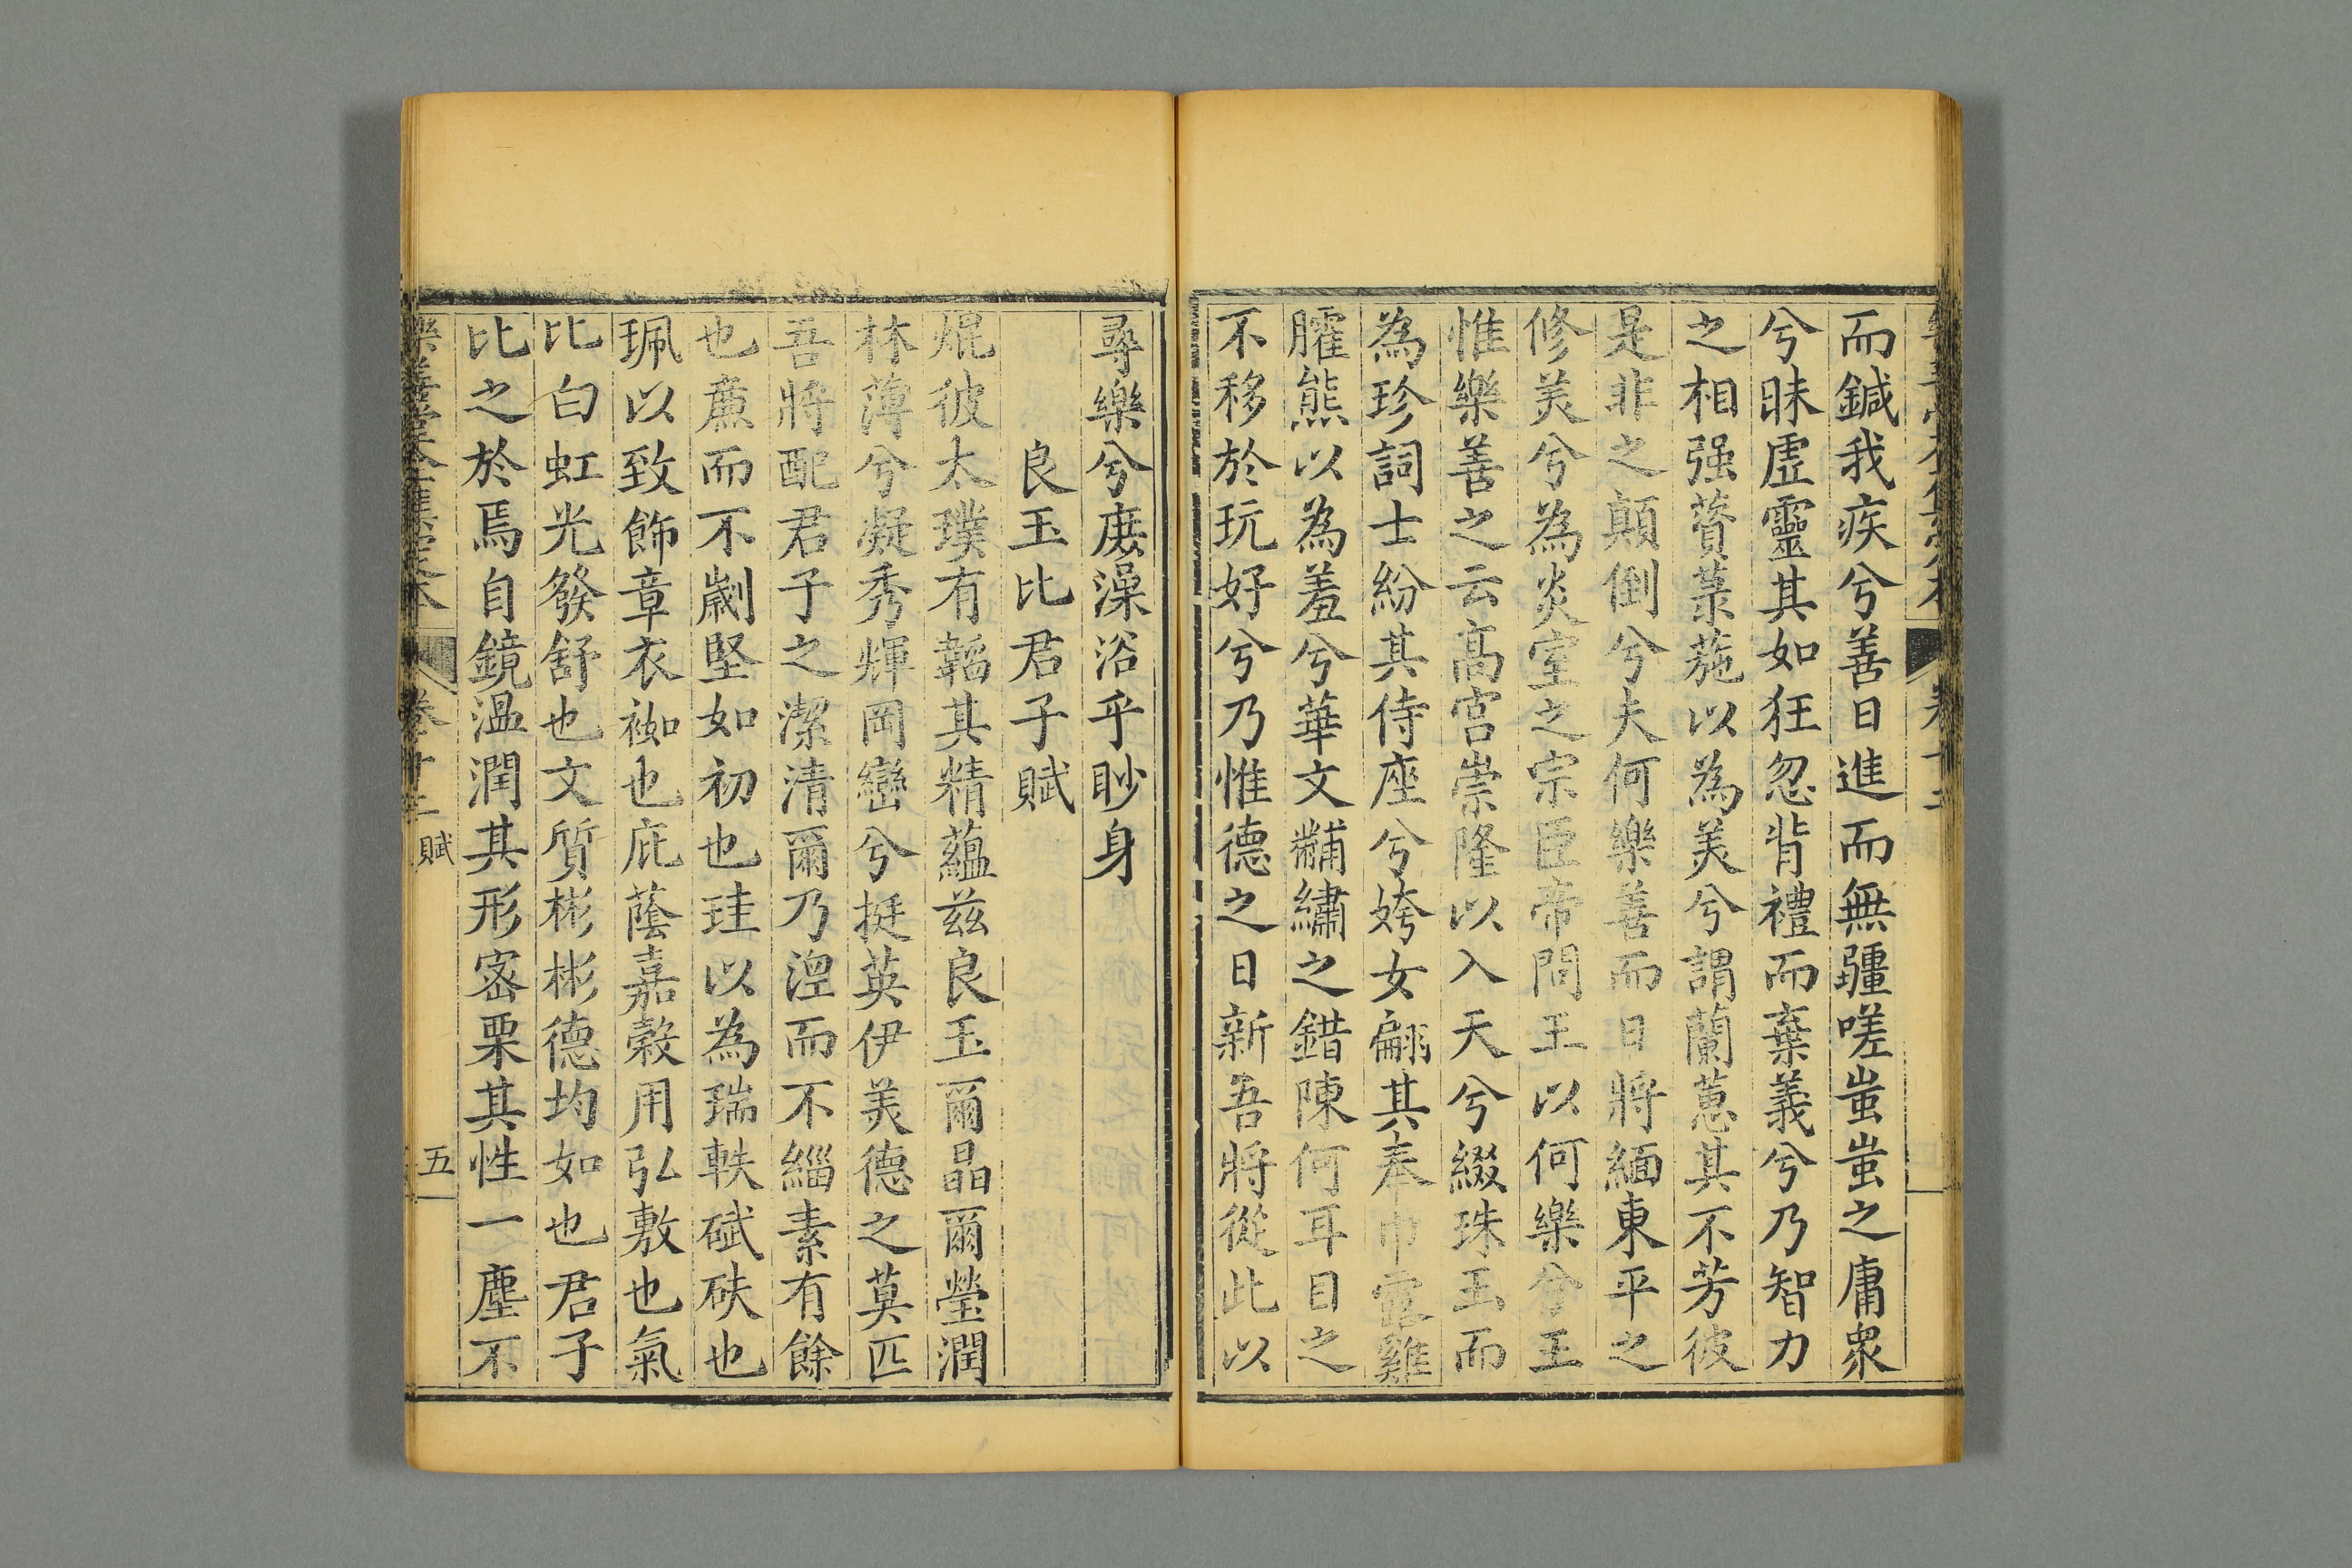 而鍼我疾兮善日進而無疆嗟蚩蚩之庸衆
兮昧虛靈其如狂忽背禮而棄義兮乃智力
之相强薋菉葹以為美兮謂蘭蕙其不芳彼
是非之顛倒兮夫何樂善而日將緬東平之
修美兮為炎室之宗臣帝問王以何樂兮王
惟樂善之云髙宫崇隆以入天兮綴珠玉而
為珍詞士紛其侍座兮姱女翩其奉巾露雞
臛熊以為羞兮華文黼繡之錯陳何耳目之
不移於玩好兮乃惟德之日新吾將從此以
尋樂兮庶澡浴乎眇身
良玉比君子賦
焜彼太璞有韜其精蘊兹良玉爾晶爾瑩潤
林薄兮凝秀輝岡巒兮挺英伊美德之莫匹
吾將配君子之潔清爾乃湼而不緇素有餘
也亷而不劌堅如初也珪以為瑞軼碔砆也
珮以致飾章衣袽也庇蔭嘉榖用弘敷也氣
比白虹光發舒也文質彬彬德均如也君子
比之於焉自鏡溫潤其形宻栗其性一塵不
樂善堂全集定本 卷十二 賦 五